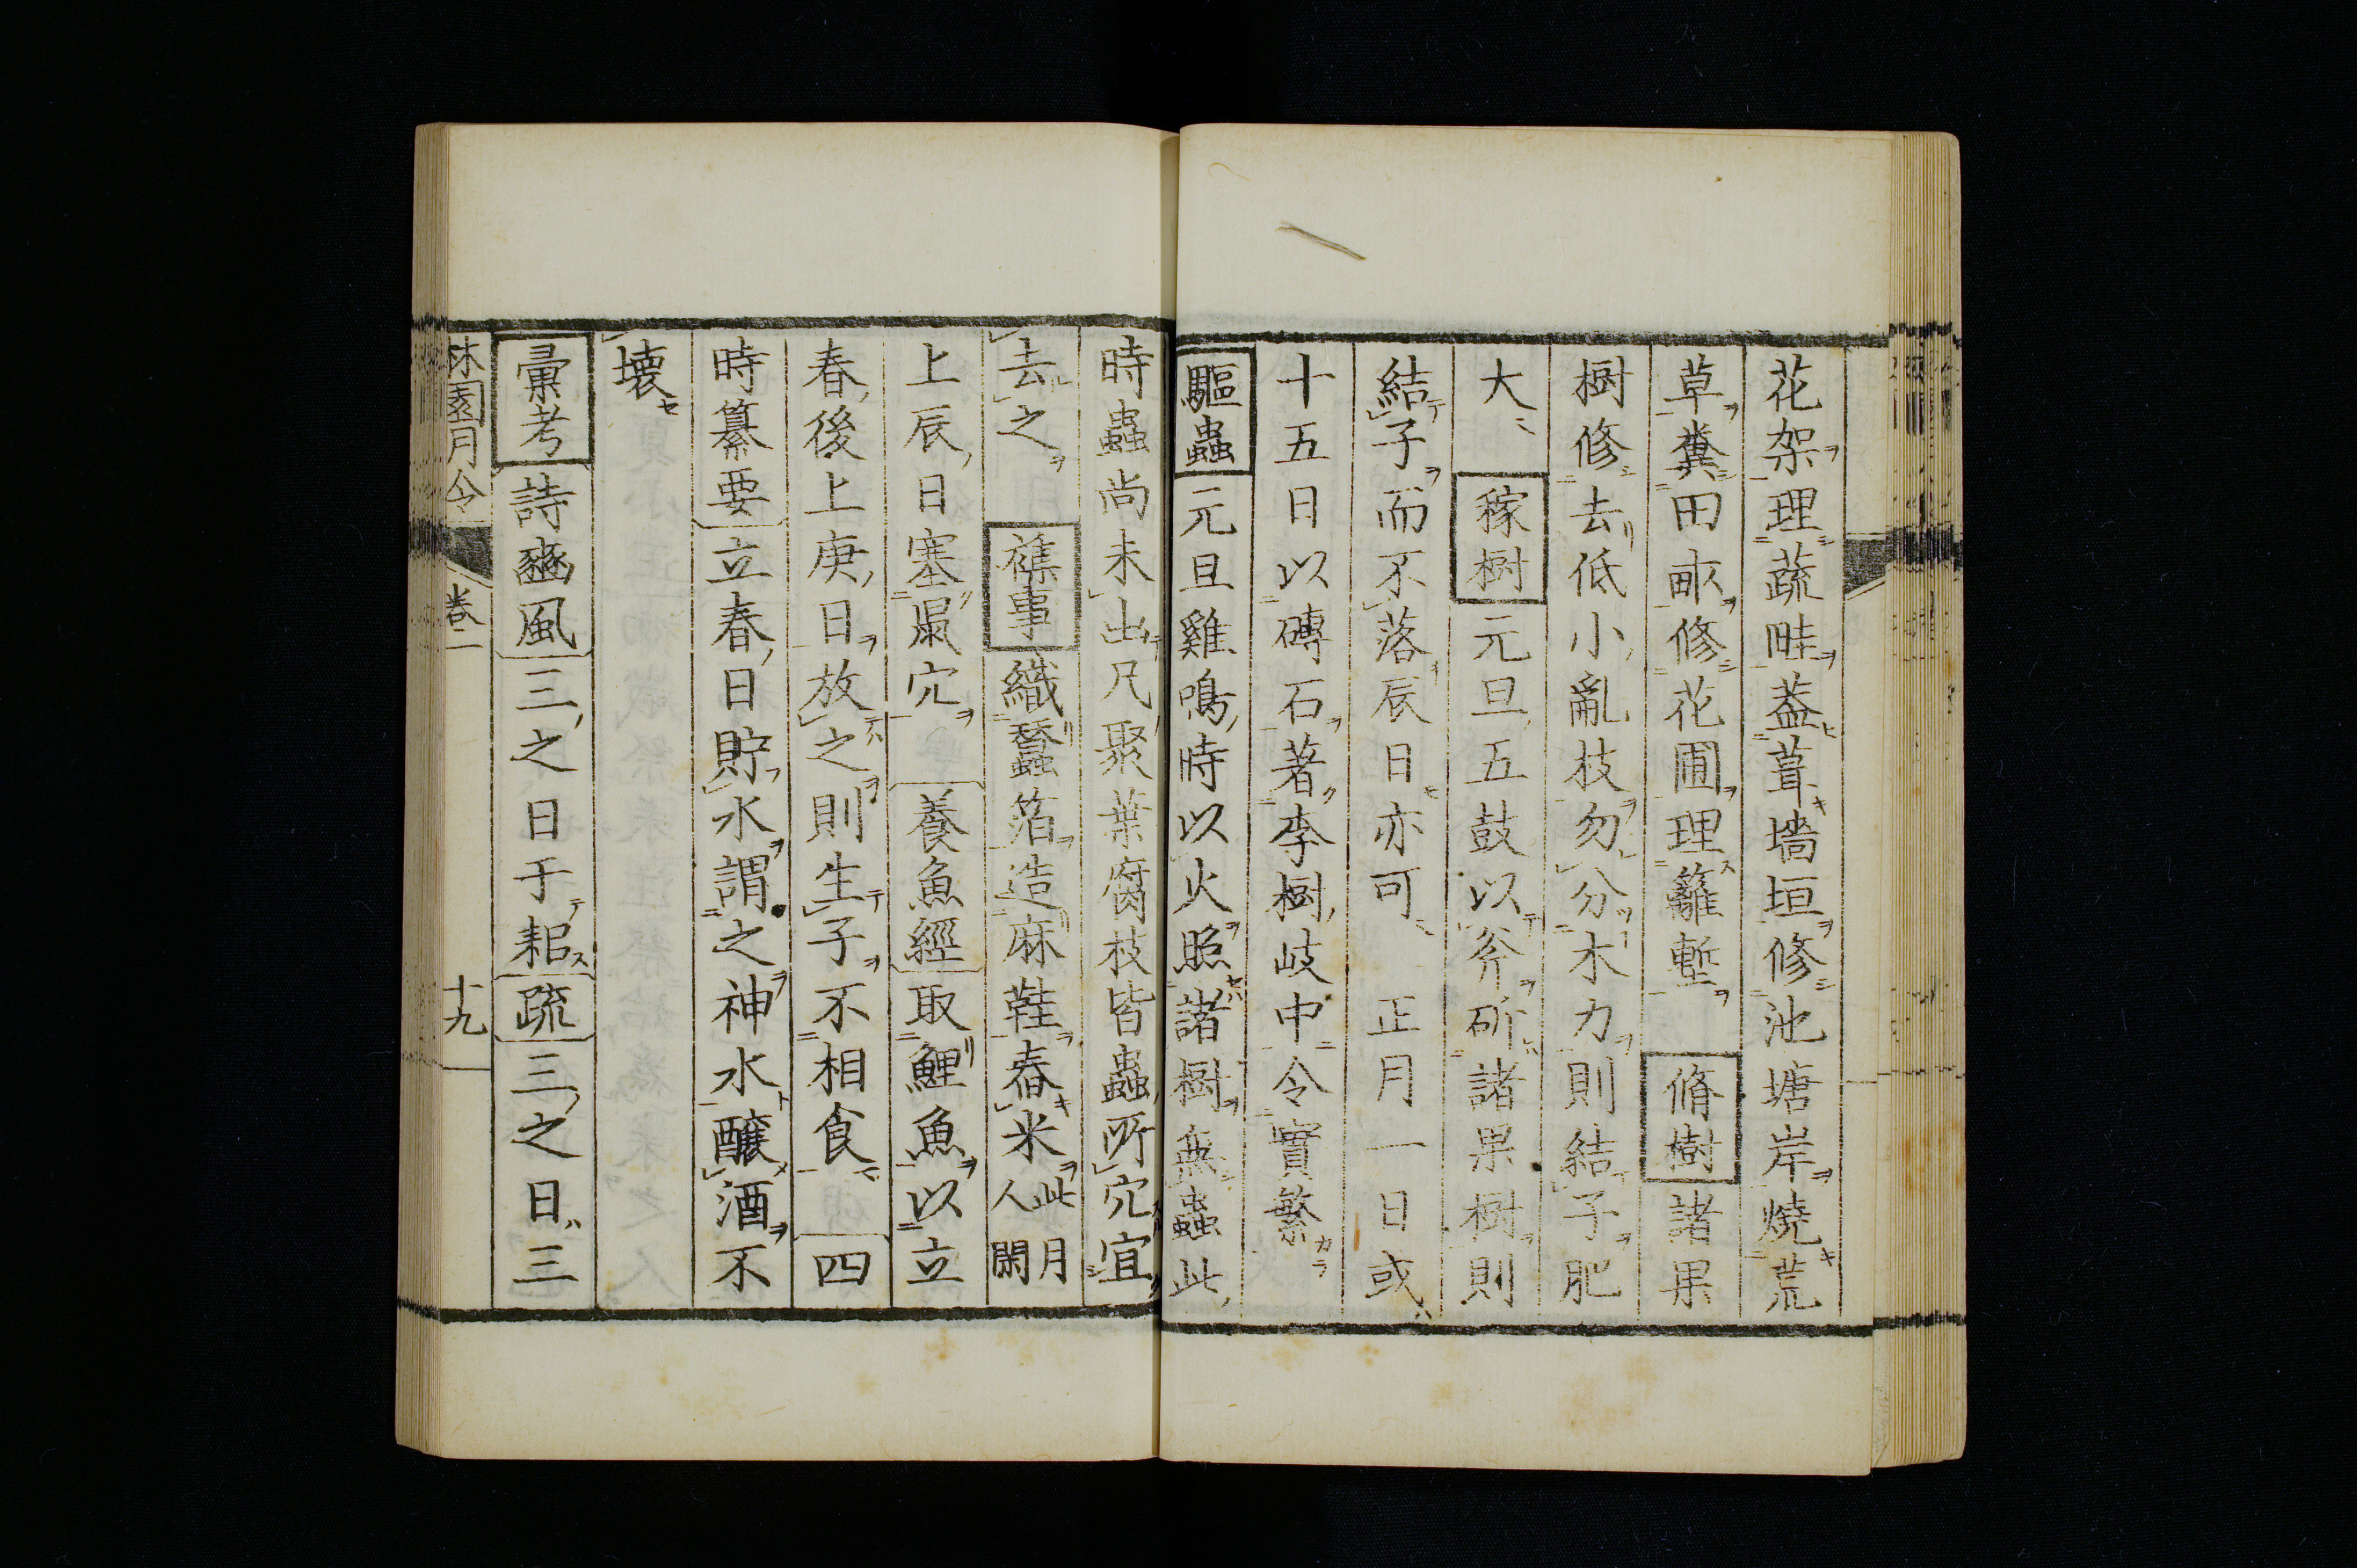 花架理蔬畦葢葺墻垣修池塘岸燒荒
草糞田畝修花圃理籬塹 脩樹 諸果
樹修去低小亂枝勿分木力則結子肥
大 稼樹 元旦五鼓以斧斫諸果樹則
結子而不落辰日亦可 正月一日或
十五日以磚石著李樹岐中令實繁
驅蟲 元旦雞鳴時以火照諸樹無蟲此
時蟲尚未出凡聚葉腐枝皆蟲所穴宜
去之 襍事 織蠶箔造麻鞋舂米此月人閑
上辰日塞鼠穴 養魚經 取鯉魚以立
春後上庚日放之則生子不相食 四
時纂要 立春日貯水謂之神水釀酒不
壞
彙考 詩豳風 三之日于耜 疏 三之日三
林園月令 卷二 十九